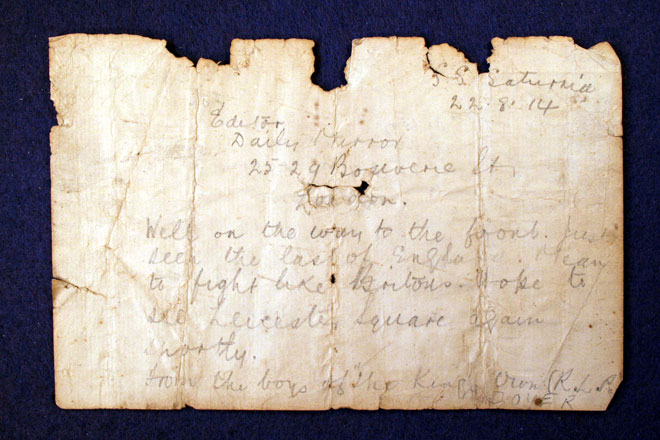 S.S. Saturnia
22.8.14
Editor
Daily Mirror
25-29 Bouverie St
London.
Well on the way to the front. Just
seen the last of England. Mean
to fight like Britons. Hope to
see Leicester Square again
shortly.
from the boys of "The King's Own (R.L.R)
DOVER